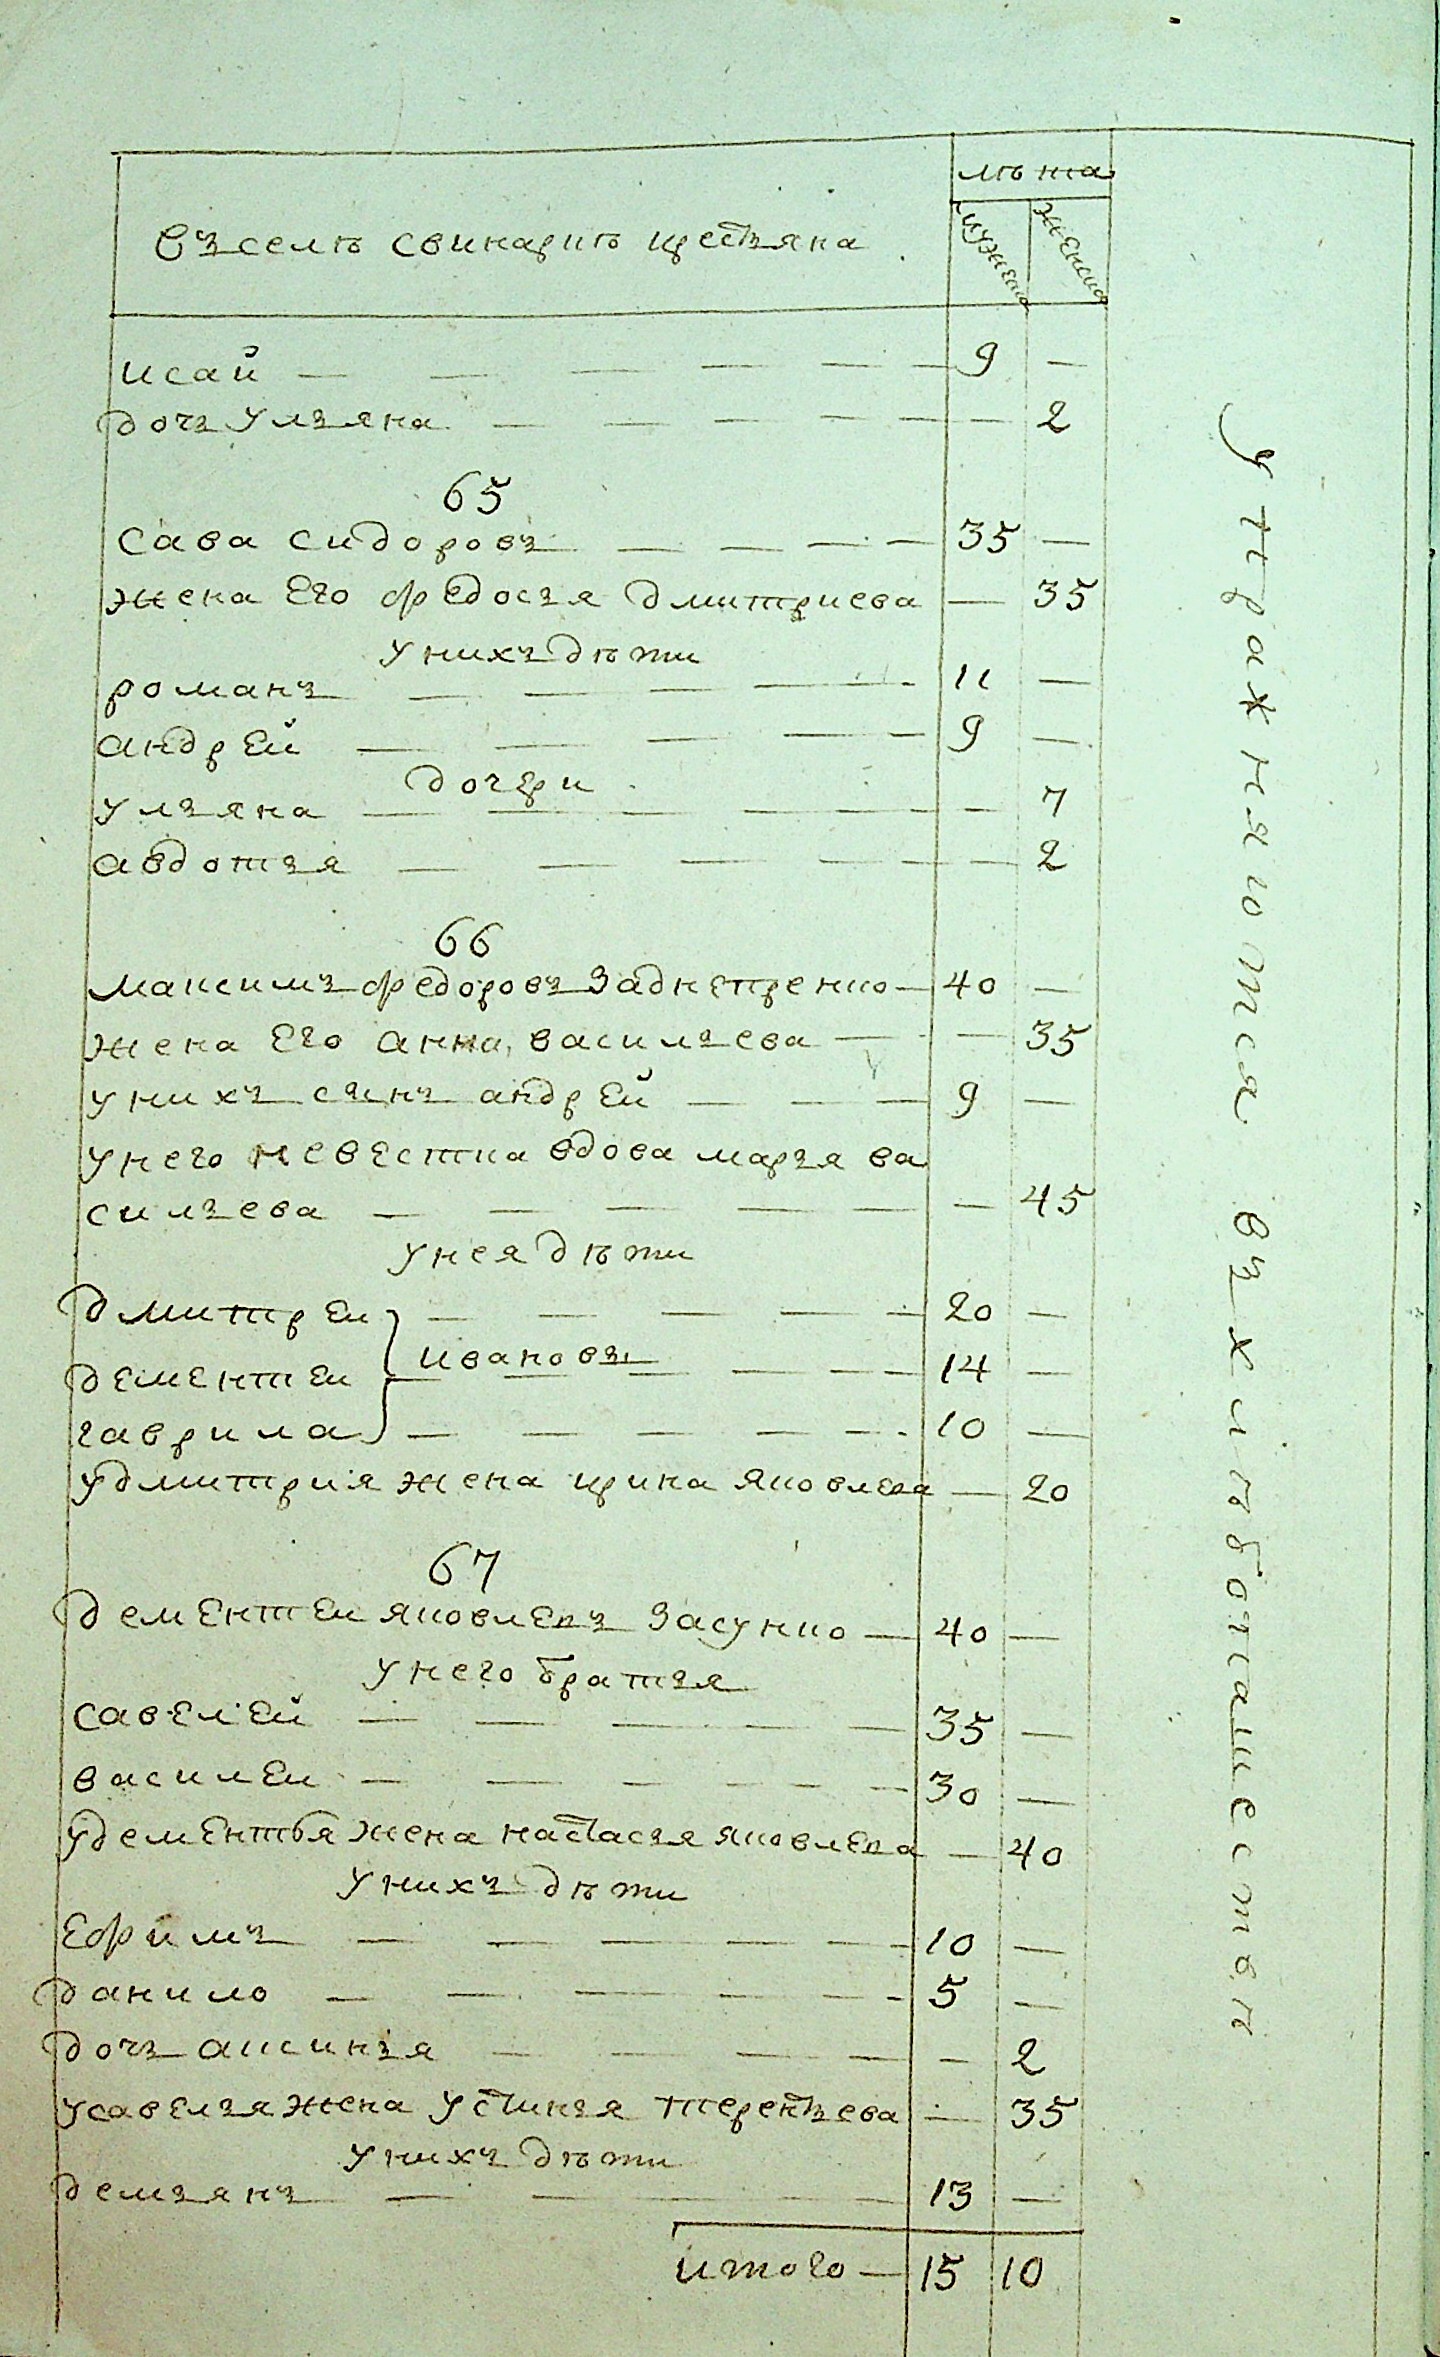 лѣта
въ селѣ свинарнѣ крестьяна
мужеска женска
исай — 9 —
дочъ ульяна — — 2
65
сава сидоровъ — 35 —
жена его федосья дмитриева — 35
у нихъ дѣти
романъ — 11 —
андрей — 9 —
дочери
ульяна — — 7
авдотья — — 2
66
максимъ федоровъ заднепренко — 40 —
жена его анна васильева — — 35
у нихъ сынъ андрей — 9 —
у него невестка вдова марья ва
сильева — — 45
у нея дѣти
дмитрей — 20 —
дементей } ивановы — 14 —
гаврила — 10 —
у дмитрия жена ирина яковлева — 20
67
дементей яковлевъ засунко — 40 —
у него братья
савелей — 35 —
василей — 30 —
у дементья жена настасья яковлева — 40
у нихъ дѣти
ефимъ — 10 —
данило — 5 —
дочъ аксинья — — 2
у савелья жена устинья терентьева — 35
у нихъ дѣти
демьянъ — 13 —
итого — 15 10
упражняются въ хлѣбопашествѣ